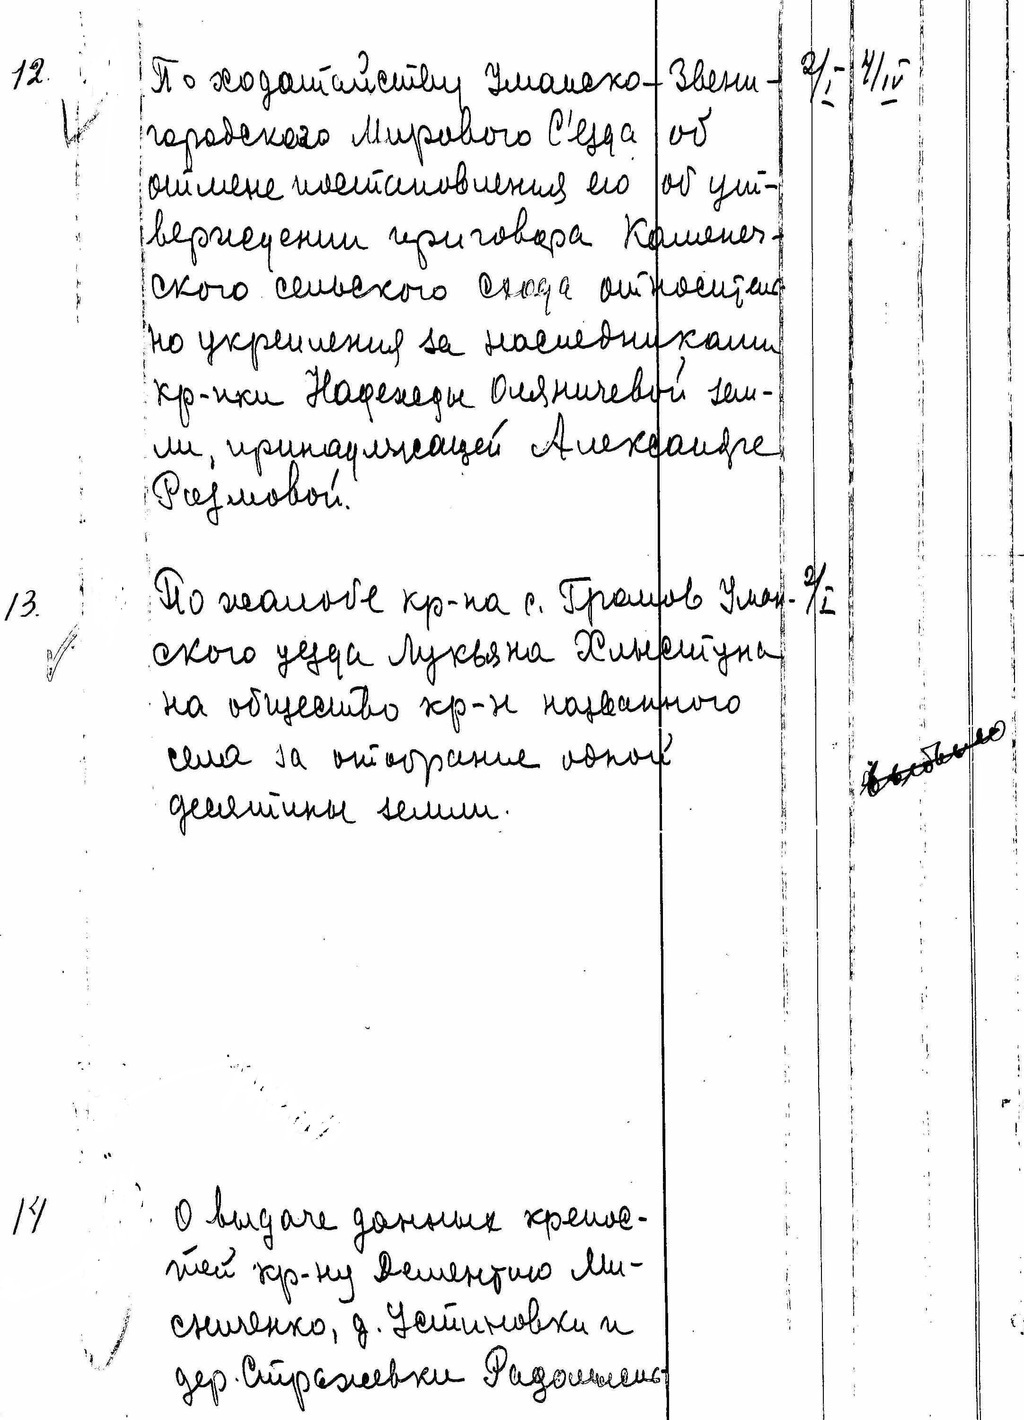 12. По ходатайству Уманско-Звени- 2/I 4/IV
городского Мирового С'езда об
отмене постановления его об ут-
верждении приговора Каменеч-
ского сельского схода относитель
но укрепления за наследниками
кр-нки Надежды Оляничевой зем-
ли, принадлежащей Александре
Разловой.
13. По жалобе кр-на с. Громов Уман- 2/I
ского уезда Лукьяна Хлыстуна
на общество кр-н названного
села за отобрание одной
десятины земли.
выбыло
14 О выдаче данных крепос-
тей кр-ну Дементию Ми-
сниченко, д. Устиновки и
дер. Стражевки Радомысль-